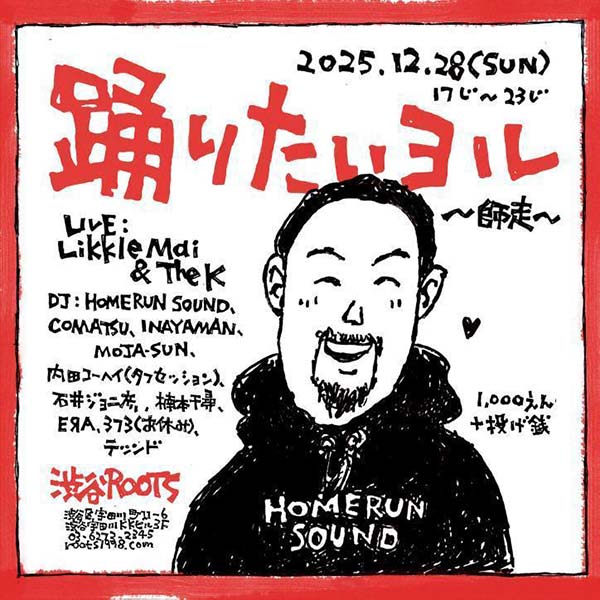 2025.12.28(SUN)
17じ〜23じ
踊りたいヨル
〜師走〜
LIVE:
Likkle Mai
& The K
DJ: HOMERUN SOUND、
COMATSU、INAYAMAN、
MOJA-SUN、
内田コーヘイ(タフセッション)、
石井ジョニ
楠本千尋
ERA、373(お休み)、
テツンド
1,000えん
+投げ銭
渋谷ROOTS
渋谷区宇田川町11-6
渋谷宇田川KKビル3F
03-6273-2345
roots1998.com
HOMERUN
SOUND